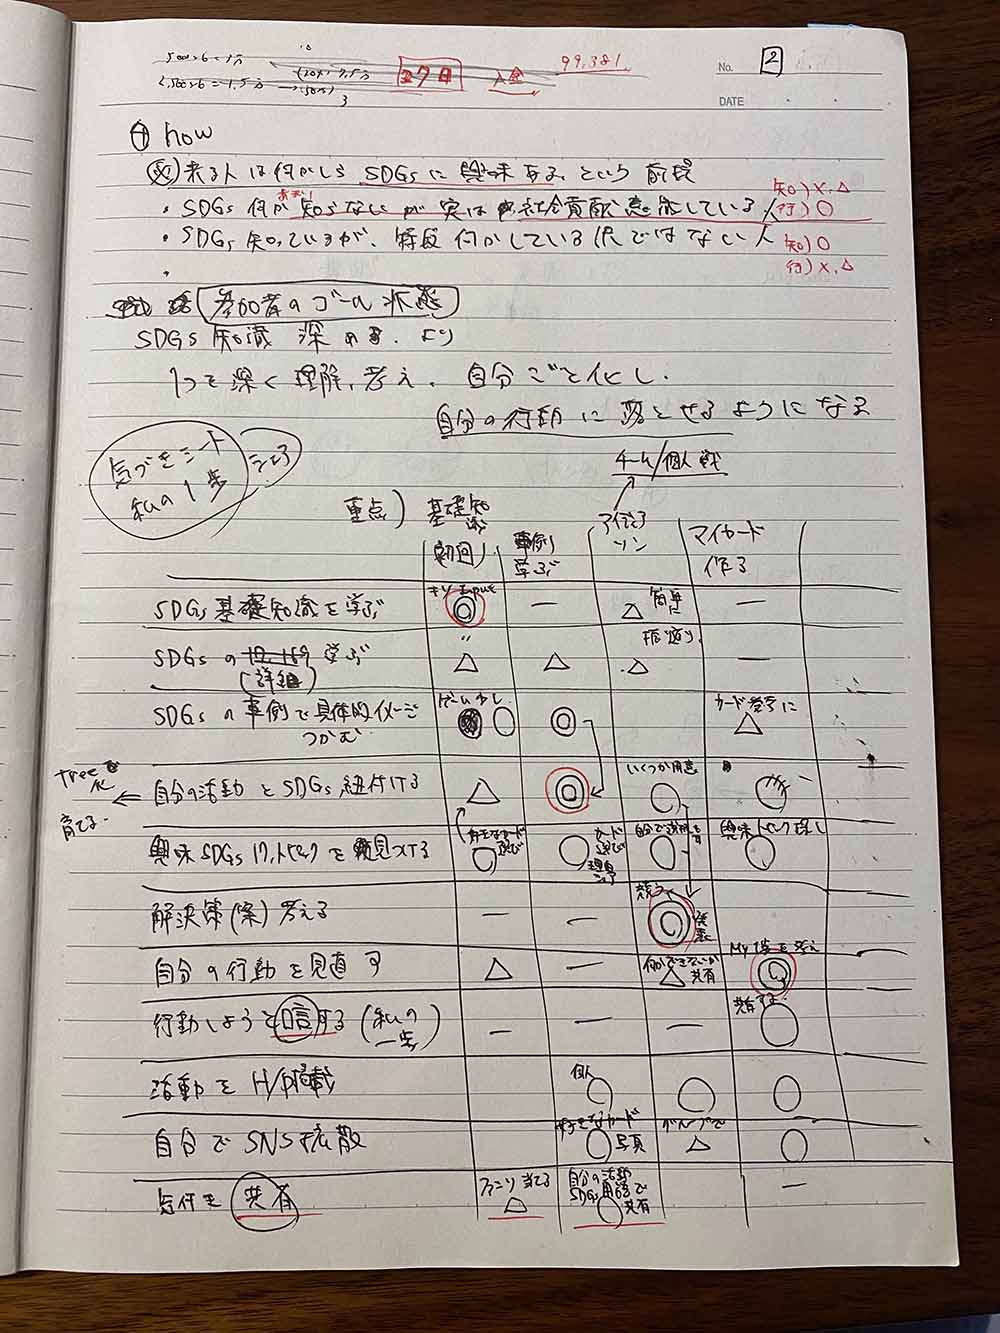 500×6=1万
2,500×6=1.5万
27日 入金 99,381
No. 2
DATE
④ how
来る人は何かしら SDGsに興味ある、という前提
・SDGs 何か あまり 知らないが 実は 社会貢献意識している人 知)×,△ 行)○
・SDGs 知っているが、特段 何かしている訳ではない人 知)○ 行)×,△
・
参加者のゴール状態
SDGs 知識 深める より
1つを深く理解、考え、自分ごと化し、
自分の行動に落とせるようになる
気づきシート
私の1歩
シェア
チーム/個人戦
重点) 基礎知識 初回 事例 学ぶ アイデアソン マイカード作る
SDGs 基礎知識を学ぶ キソ Input ◎ ー △ 簡単に ー
SDGsの 17.169 学ぶ (詳細) 〃 △ △ △ 振返り ー
SDGsの事例で具体的イメージつかむ ゲーム ○ ◎ カード 参考に △
tree化 育てる ← 自分の活動とSDGs紐付ける △ ◎ いくつか用意 ○ ○
興味SDGs トピックを見つける カード選び ○ ○ カード選び 理由シェア 自分で ○ 興味トピック探し ○
解決策(案)考える ー ー 競う ◎ 発表 ー
自分の行動を見直す △ ー 何かできないか △ 共有 My 考え ◎
行動しようと宣言する (私の一歩) ー ー ー 共有する ○
活動をH/P掲載 個人 ○ ○ ○
自分でSNS拡散 好きなカード ○ 写真 グループで △ ○
気付き 共有 当てる △ 自分の活動 SDGs用語で ○ 共有 ー